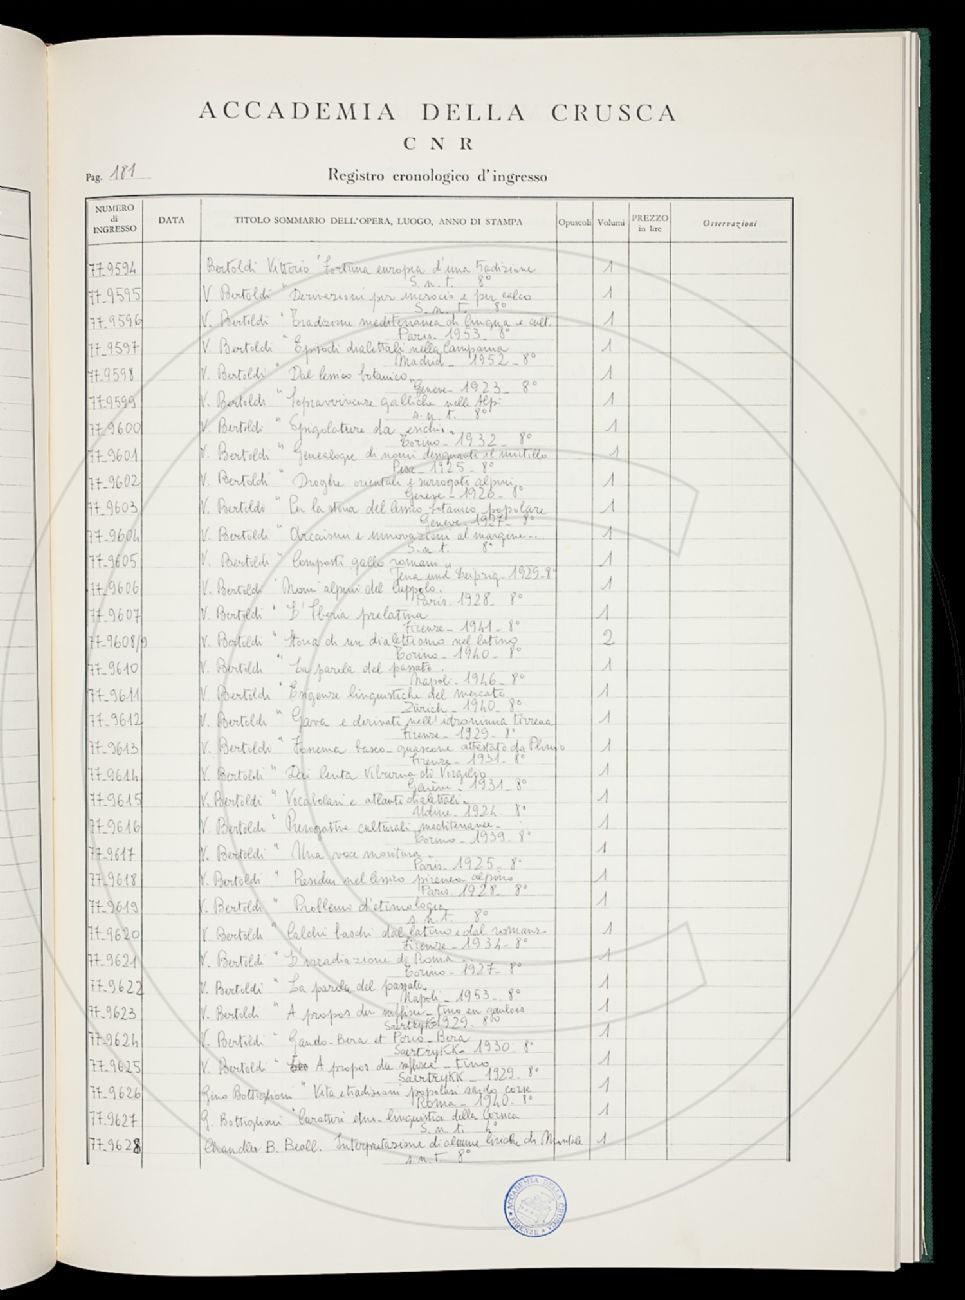 ACCADEMIA DELLA CRUSCA
C N R
Pag. 181
Registro cronologico d'ingresso
NUMERO di INGRESSO DATA TITOLO SOMMARIO DELL'OPERA, LUOGO, ANNO DI STAMPA Opuscoli Volumi PREZZO in lire Osservazioni
77-9594 Bertoldi Vittorio "Fortuna europea d'una tradizione 1
S. n. t. 8°
77-9595 V. Bertoldi " Derivazioni per incrocio e per calco 1
S. n. t. 8°
77-9596 V. Bertoldi " Tradizione mediterranea di lingua e cult. 1
Paris 1953 8°
77-9597 V. Bertoldi " Episodi dialettali nella Campania 1
Madrid - 1952 - 8°
77-9598 V. Bertoldi " Dal lessico botanico 1
Genève - 1923 - 8°
77-9599 V. Bertoldi " Sopravvivenze galliche nelle Alpi 1
s. n. t. 8°
77-9600 V. Bertoldi " Spigolature da 1
Torino - 1932 - 8°
77-9601 V. Bertoldi " Genealogie di nomi designanti il mirtillo 1
Pisa - 1925 - 8°
77-9602 V. Bertoldi " Droghe orientali e surrogati alpini 1
Genève - 1926 - 8°
77-9603 V. Bertoldi " Per la storia del lessico botanico popolare 1
Genève - 1927 - 8°
77-9604 V. Bertoldi " Arcaismi e innovazioni al margine... 1
S. n. t. 8°
77-9605 V. Bertoldi " Composti gallo romani " 1
Jena und Leipzig - 1929 - 8°
77-9606 V. Bertoldi " Nomi alpini del luppolo. 1
Paris 1928 - 8°
77-9607 V. Bertoldi " L'Iberia prelatina 1
Firenze - 1941 - 8°
77-9608/9 V. Bertoldi " Storia di un dialettismo nel latino 2
Torino - 1940 - 8°
77-9610 V. Bertoldi " La parola del passato. 1
Napoli - 1946 - 8°
77-9611 V. Bertoldi " Esigenze linguistiche del mercato 1
Zürich - 1940 - 8°
77-9612 V. Bertoldi " Gava e derivati nell'idronimia tirrena 1
Firenze - 1929 - 8°
77-9613 V. Bertoldi " Fonema basco-guascone attestato da Plinio 1
Firenze - 1931 - 8°
77-9614 V. Bertoldi " Dai lenta viburna di Virgilio 1
1931 - 8°
77-9615 V. Bertoldi " Vocabolari e atlanti dialettali. 1
Udine - 1924 - 8°
77-9616 V. Bertoldi " Prerogative culturali mediterranee - 1
Torino - 1939 - 8°
77-9617 V. Bertoldi " Una voce moritura 1
Paris - 1925 - 8°
77-9618 V. Bertoldi " Residui nel lessico pireneo alpino 1
Paris 1928 - 8°
77-9619 V. Bertoldi " Problemi d'etimologia 1
s. n. t. 8°
77-9620 V. Bertoldi " Calchi baschi dal latino e dal romanz- 1
Firenze - 1934 - 8°
77-9621 V. Bertoldi " L'irradiazione di Roma 1
Torino - 1927 - 8°
77-9622 V. Bertoldi " La parola del passato 1
Napoli - 1953 - 8°
77-9623 V. Bertoldi " A propos du suffixe - tino en gaulois 1
Saertrykk 1929 - 8°
77-9624 V. Bertoldi " Gando-Bera et Porio-Bera 1
Saertrykk - 1930 - 8°
77-9625 V. Bertoldi " A propos du suffixe - tino 1
Saertrykk - 1929 - 8°
77-9626 Gino Bottiglioni " Vita e tradizioni popolari sardo corse 1
Roma - 1940 - 8°
77-9627 G. Bottiglioni " Caratteri etno-linguistici della Corsica 1
S. n. t. 4°
77-9628 Chandler B. Beall. Interpretazione di alcune liriche di Montale 1
s. n. t. 8°
ACCADEMIA DELLA CRUSCA FIRENZE